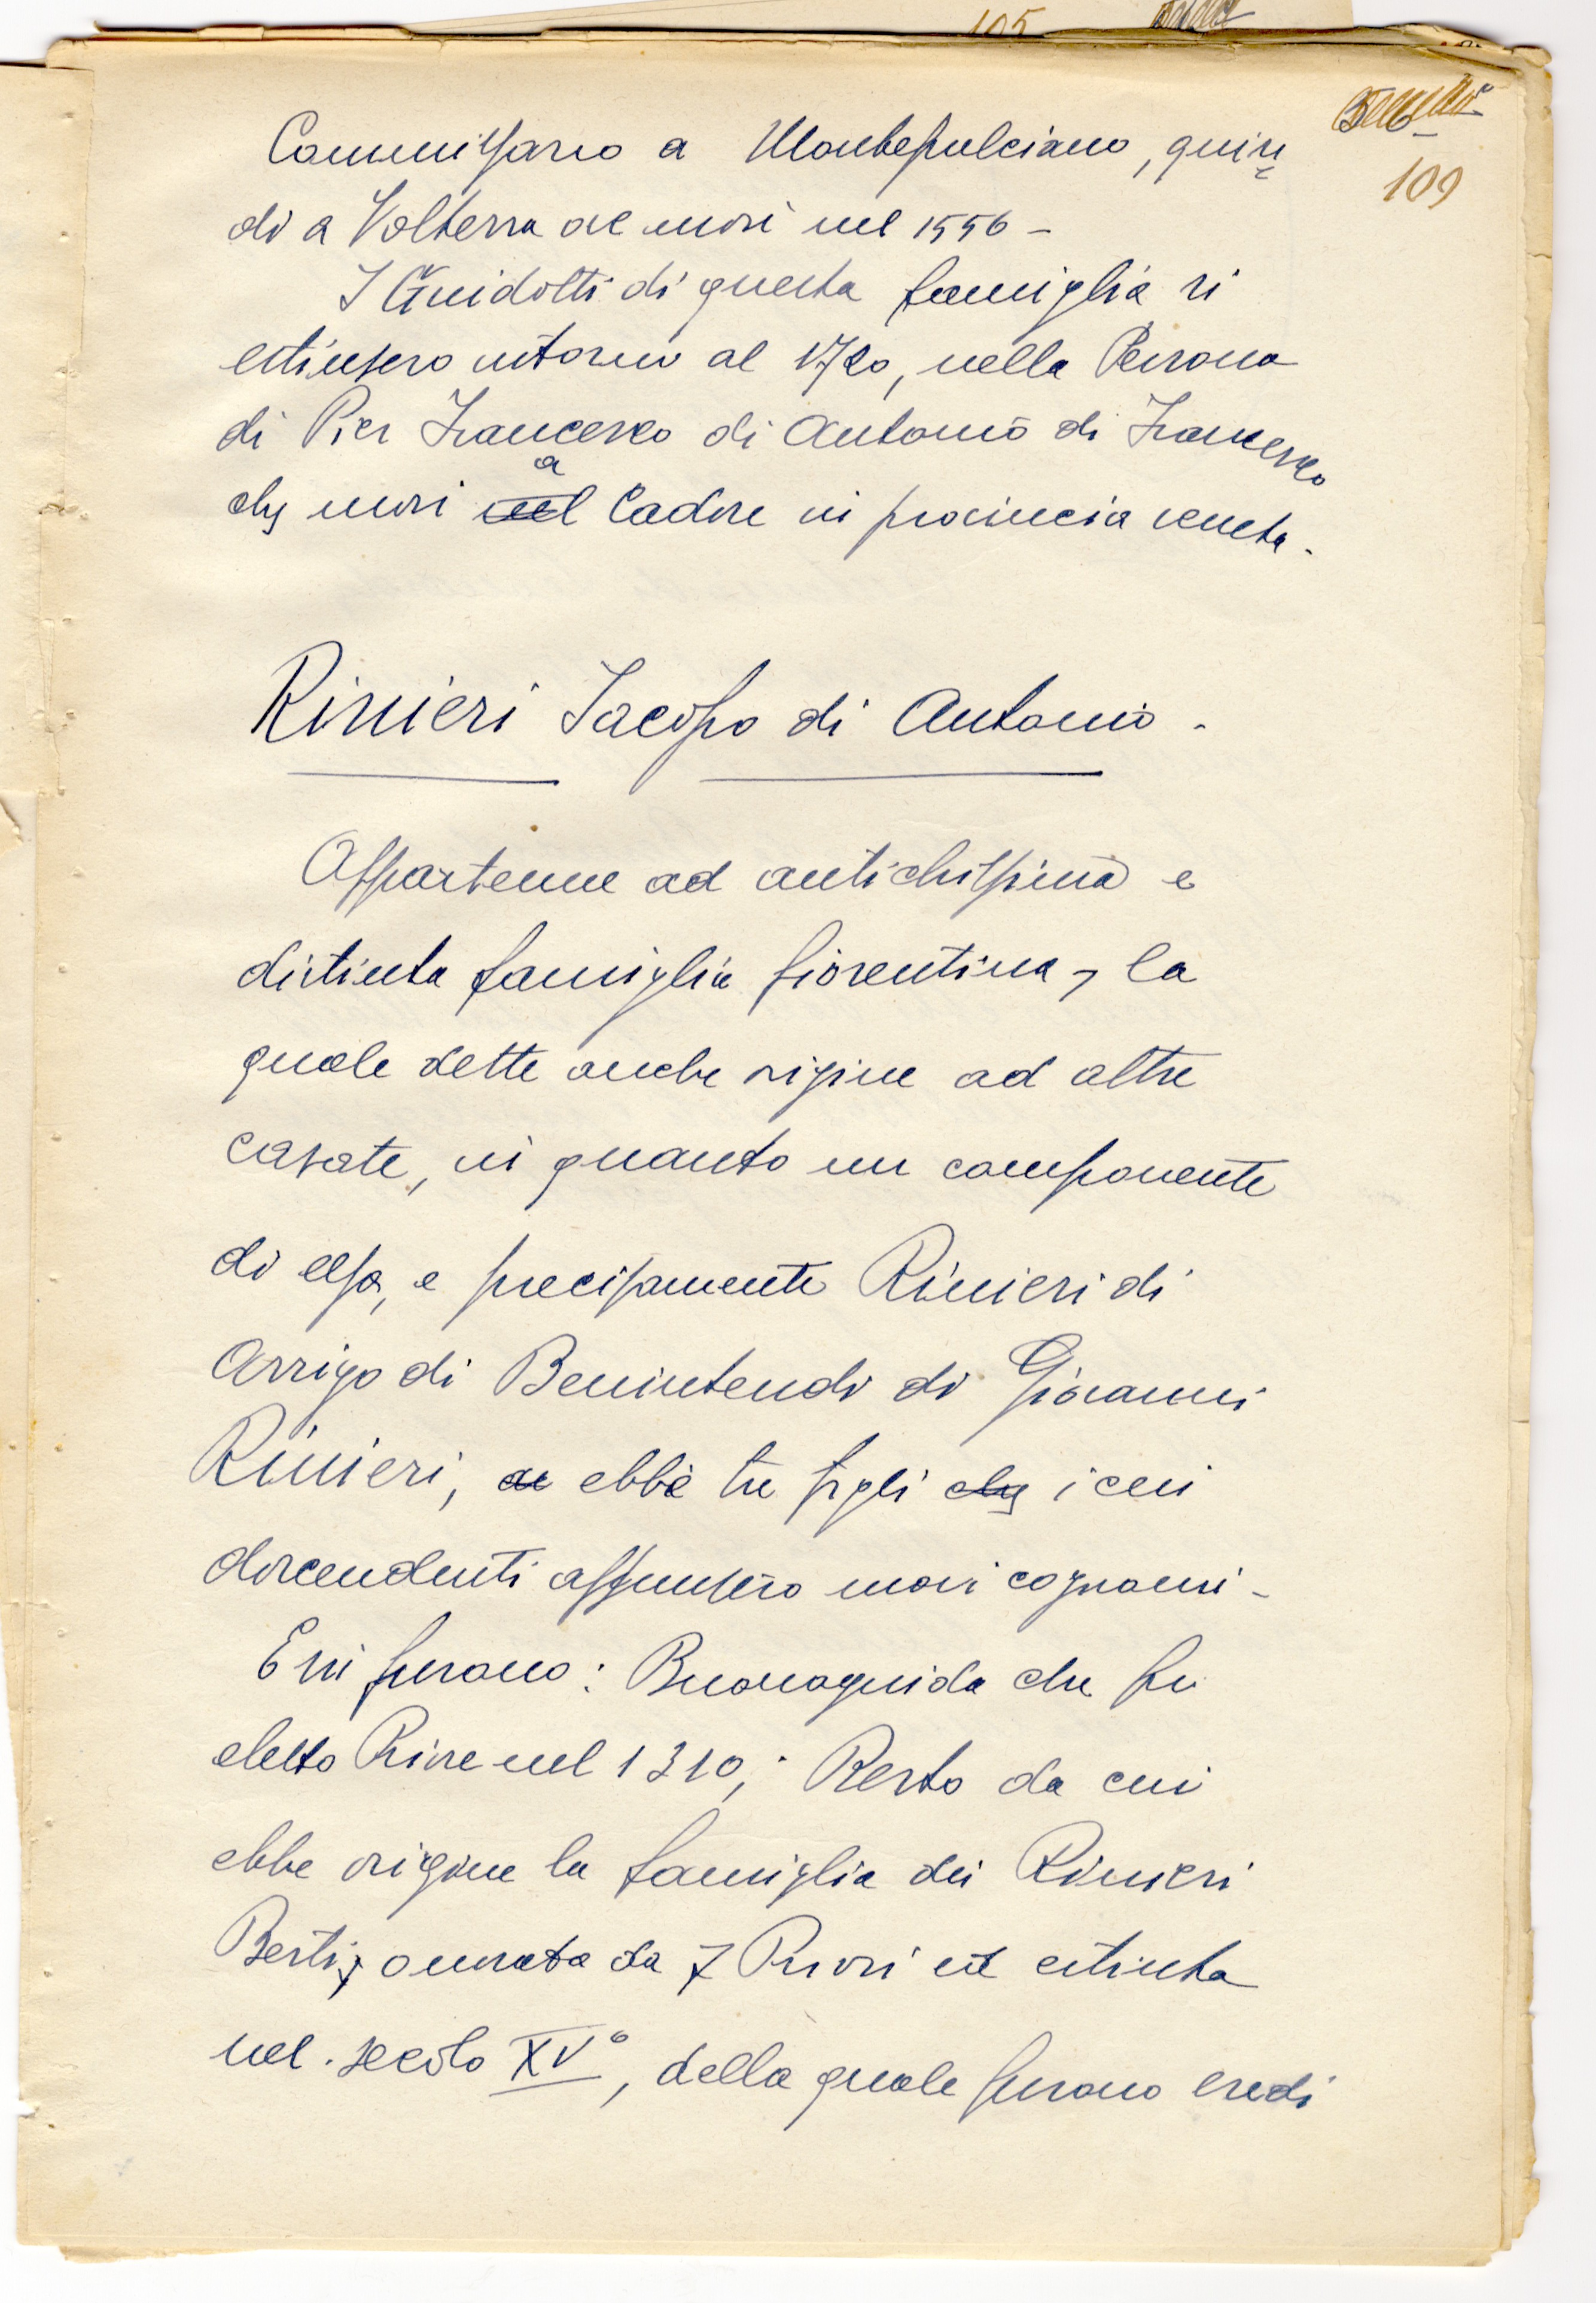 105
109
Commissario a Montepulciano, quin
di a Volterra ove morì nel 1556 -
I Guidotti di questa famiglia si
estinsero intorno al 1720, nella Persona
di Pier Francesco di Antonio di Francesco
che morì a
nel Cadore in provincia veneta.
Rinieri Jacopo di Antonio.
Appartenne ad antichissima e
distinta famiglia fiorentina, la
quale dette anche origine ad altre
casate, in quanto un componente
di essa, e precisamente Rinieri di
Arrigo di Benintendi di Giovanni
Rinieri, ebbe tre figli che i cui
discendenti assunsero nuovi cognomi -
Essi furono: Buonaguida che fu
eletto Priore nel 1310,; Berto da cui
ebbe origine la famiglia dei Rinieri
Berti, onorata da 7 Priori ed estinta
nel secolo XV°, della quale furono eredi